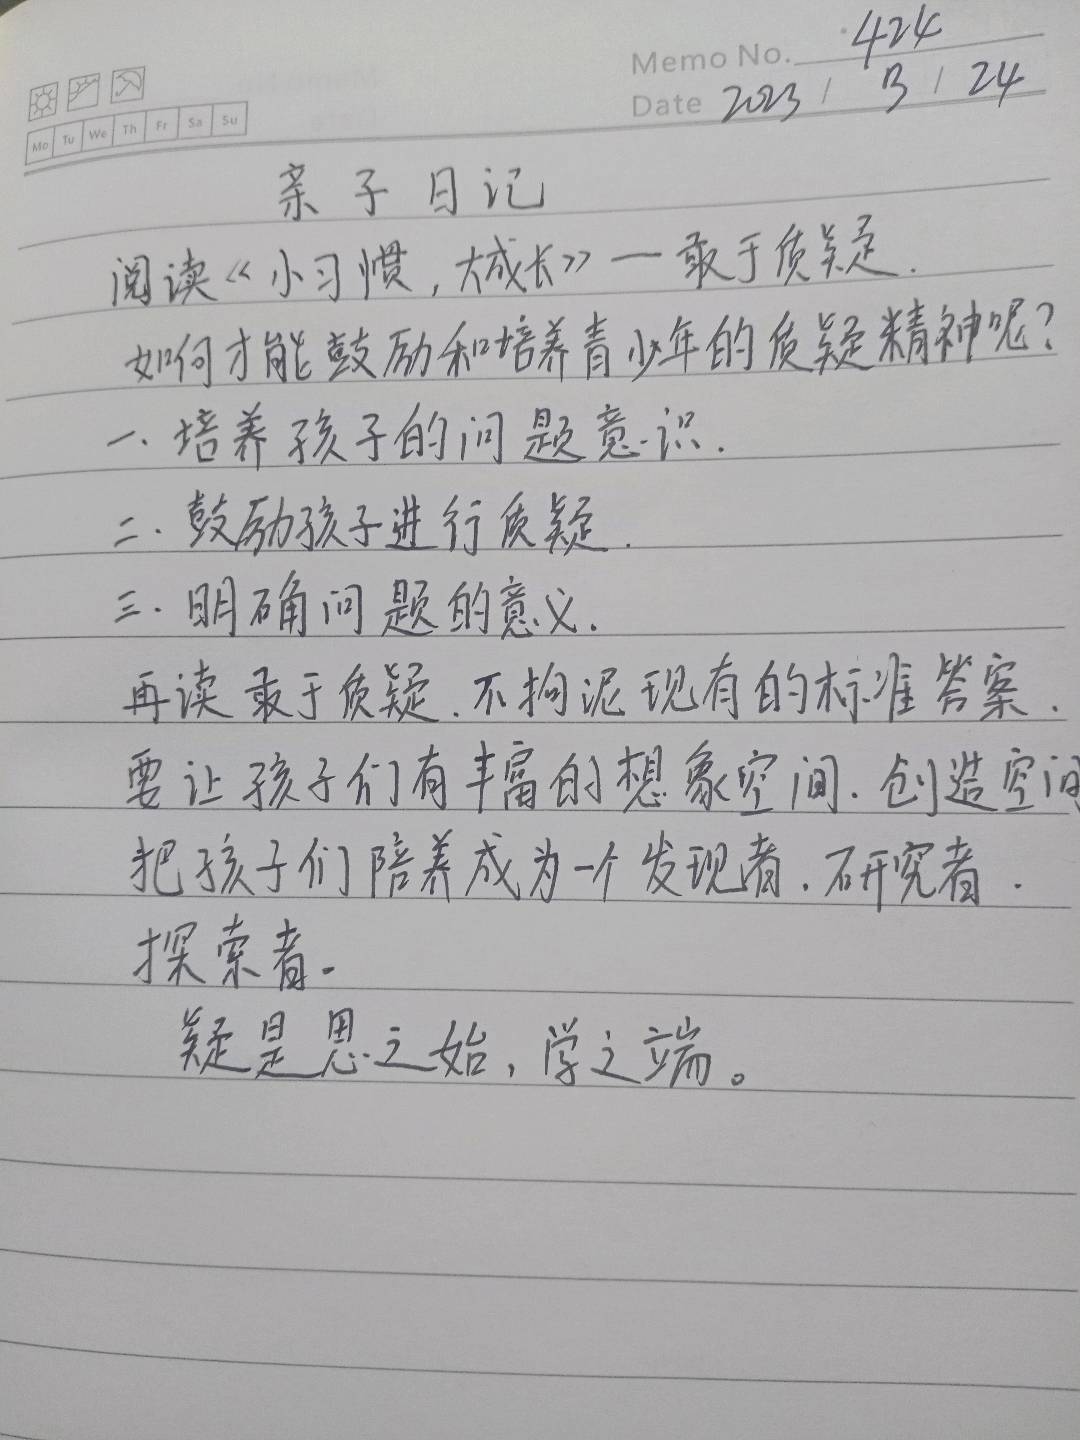 Memo No. 424
Date 2023 / 3 / 24
Mo Tu We Th Fr Sa Su
亲子日记
阅读《小习惯,大成长》一敢于质疑.
如何才能鼓励和培养青少年的质疑精神呢?
一.培养孩子的问题意识.
二.鼓励孩子进行质疑.
三.明确问题的意义.
再读敢于质疑.不拘泥现有的标准答案.
要让孩子们有丰富的想象空间.创造空间
把孩子们陪养成为一个发现者.研究者.
探索者.
疑是思之始,学之端。